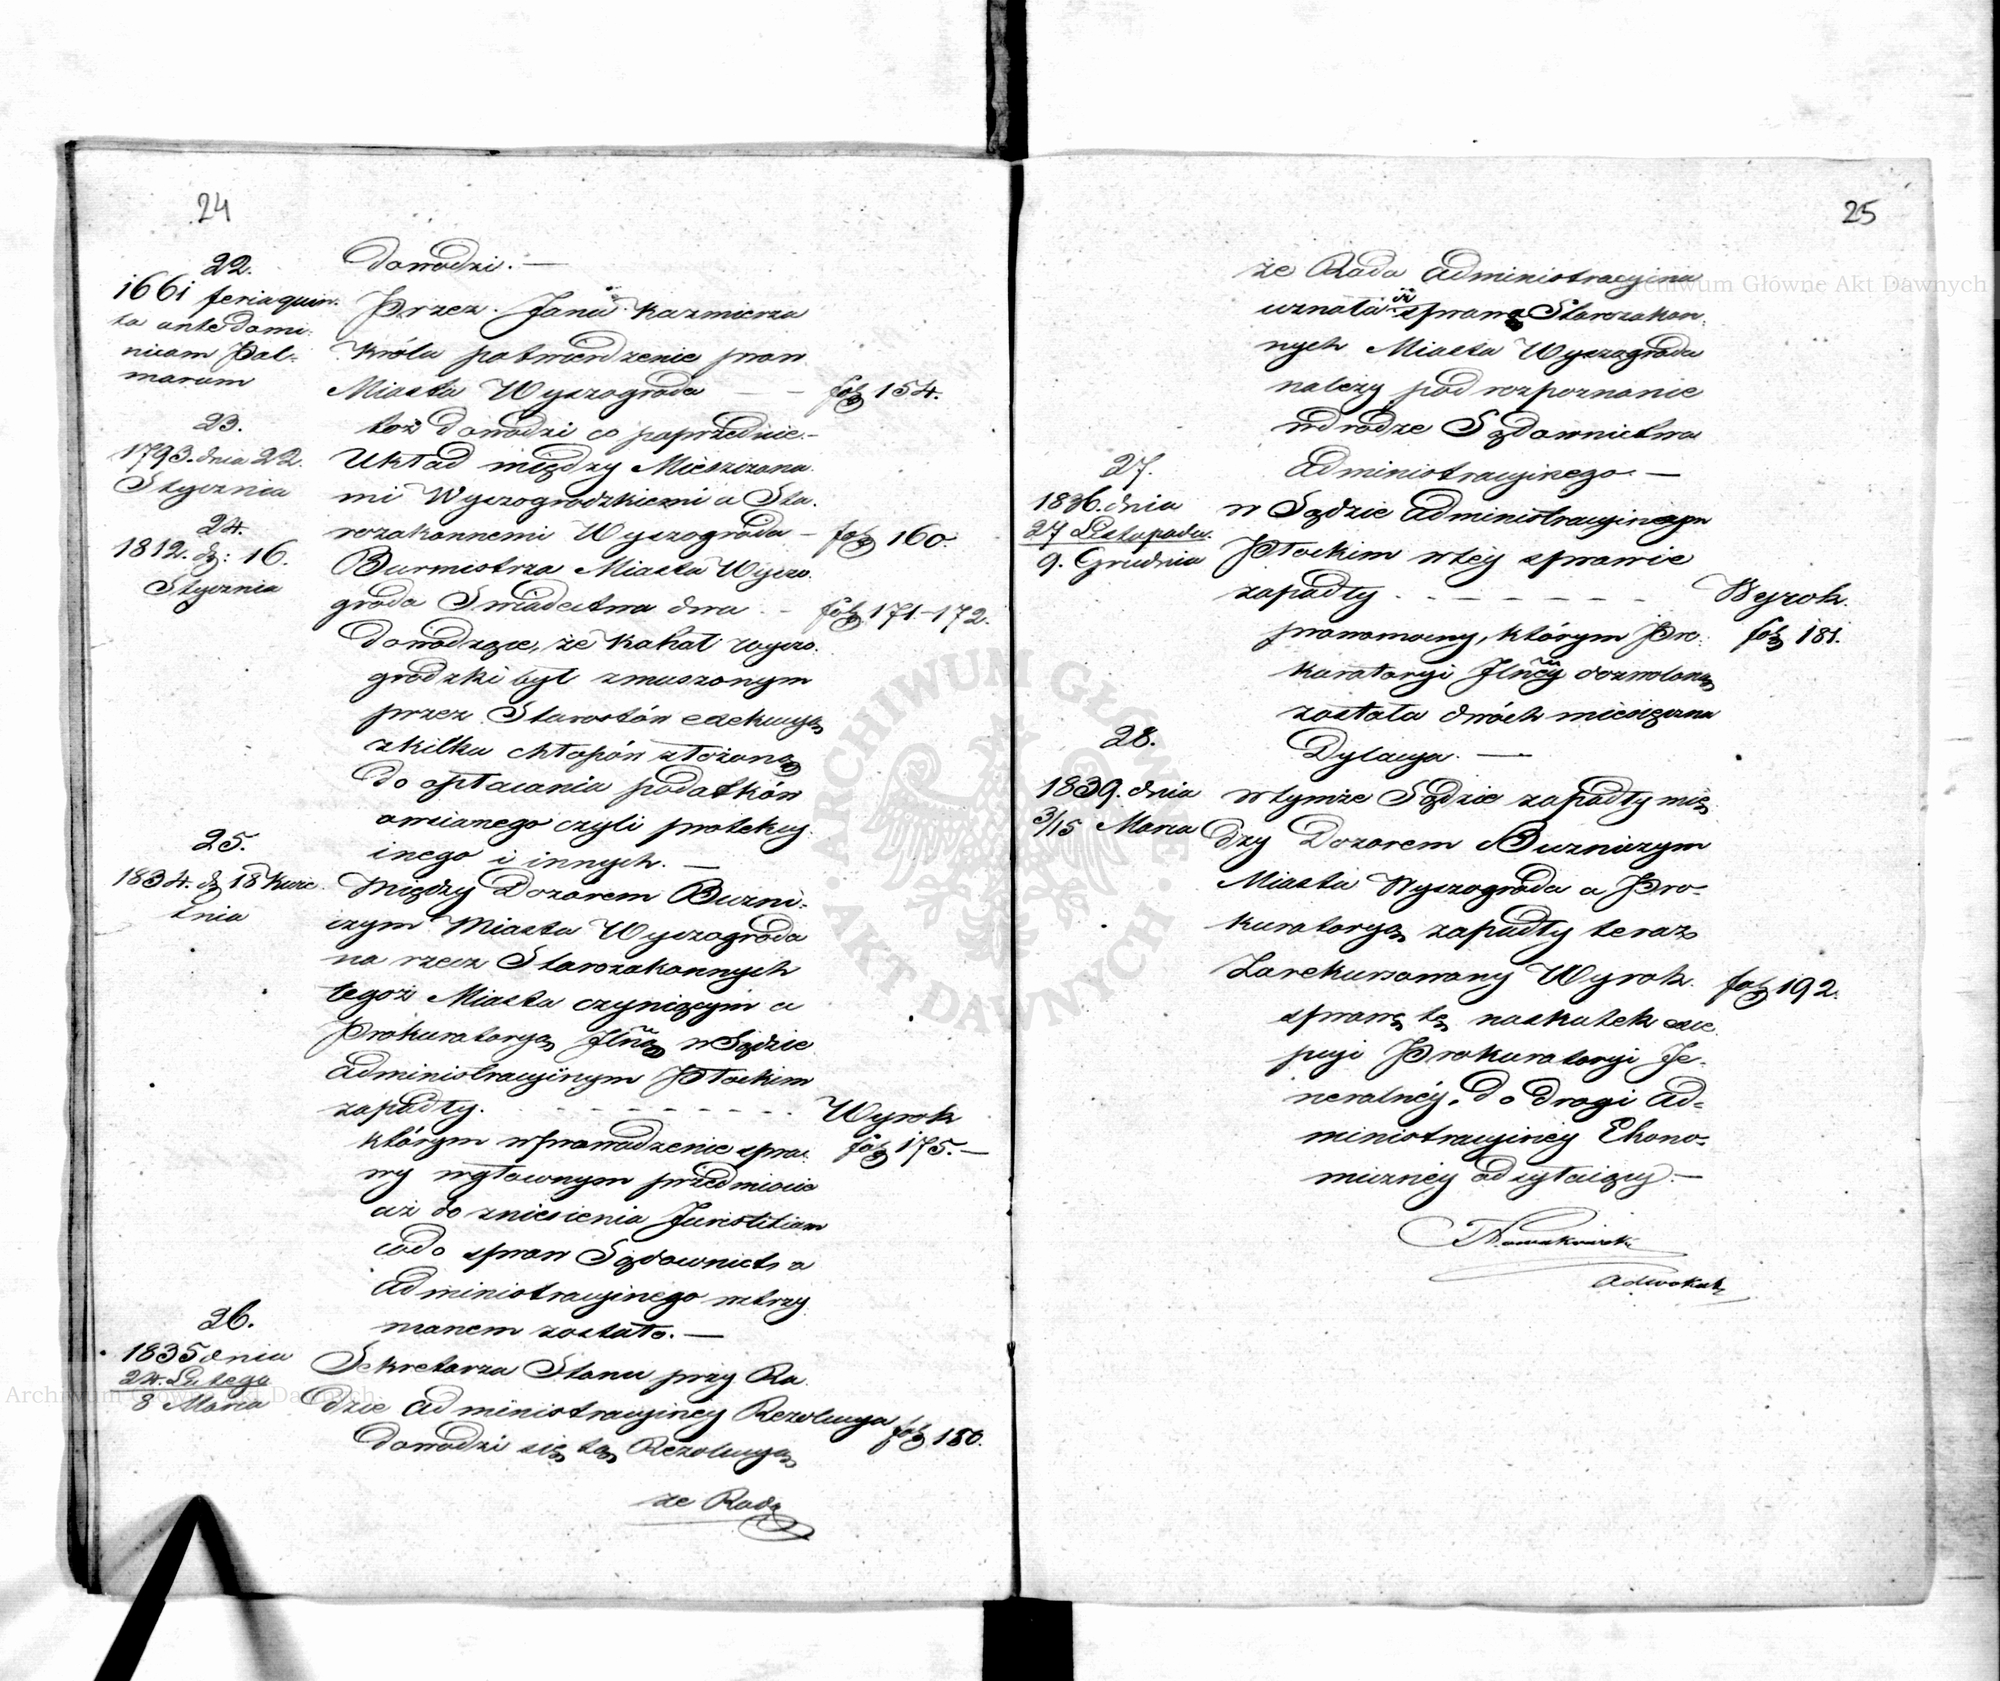 24
dowodzi. —
22.
1661 feria quin-
ta ante domi-
nicam Pal-
marum
Przez Jana Kazmierza
Króla potwierdzenie praw
Miasta Wyszogroda — — fol. 154.
toż dowodzi co poprzednie. —
23.
1793. dnia 22.
Stycznia
Układ między Mieszczana-
mi Wyszogrodzkiemi a Sta-
rozakonnemi Wyszogroda — fol. 160.
24.
1812. d: 16.
Stycznia
Burmistrza Miasta Wyszo-
groda Swiadectwa dwa — fol. 171-172.
dowodzące, że Kahał wyszo-
grodzki był zmuszonym
przez Starostów exekucyą
z kilku chłopów złożoną
do opłacania podatków
owsianego czyli protekcy-
inego i innych. —
25.
1834. d. 18 Kwie-
tnia
Między Dozorem Buzni-
czym Miasta Wyszogroda
na rzecz Starozakonnych
tegoż Miasta czyniącym a
Prokuratoryą Jlną w Sądzie
administracyjnym Płockim
zapadły. - - - - - - - - - Wyrok
fol. 175. —
którym wprowadzenie spra-
wy w głownym przedmiocie
aż do zniesienia Juristitium
co do spraw Sądownictwa
administracyjnego wstrzy-
manem zostało. —
26.
1835 dnia
24. Lutego
8 Marca
Sekretarza Stanu przy Ra-
dzie administracyjney Rezolucya fol. 180.
dowodzi się tą Rezolucyą
że Rada
25
że Rada administracyjna
uznała iż sprawa Starozakon-
nych Miasta Wyszogroda
należy pod rozpoznanie
w drodze Sądownictwa
administracyjnego. —
27.
1836. dnia
27 Listopada.
9. Grudnia
w Sądzie administracyjnym
Płockim w tey sprawie
zapadły - - - - - - - Wyrok.
fol. 181.
prawomocny, którym Pro-
kuratoryi Jlney dozwoloną
została dwóch miesięczna
Dylacya. —
28.
1839. dnia
3/15 Marca
w tymże Sądzie zapadły mię-
dzy Dozorem Buzniczym
Miasta Wyszogroda a Pro-
kuratoryą zapadły teraz
Zarekursowany Wyrok. fol. 192.
sprawę tę naskutek exce-
pcyi Prokuratoryi Je-
neralnéy, do drogi ad-
ministracyjnéy Ekono-
micznéy odsyłaiący. —
Nowakowski
adwokat
Archiwum Główne Akt Dawnych
Archiwum Główne Akt Dawnych
ARCHIWUM GŁÓWNE · AKT DAWNYCH ·